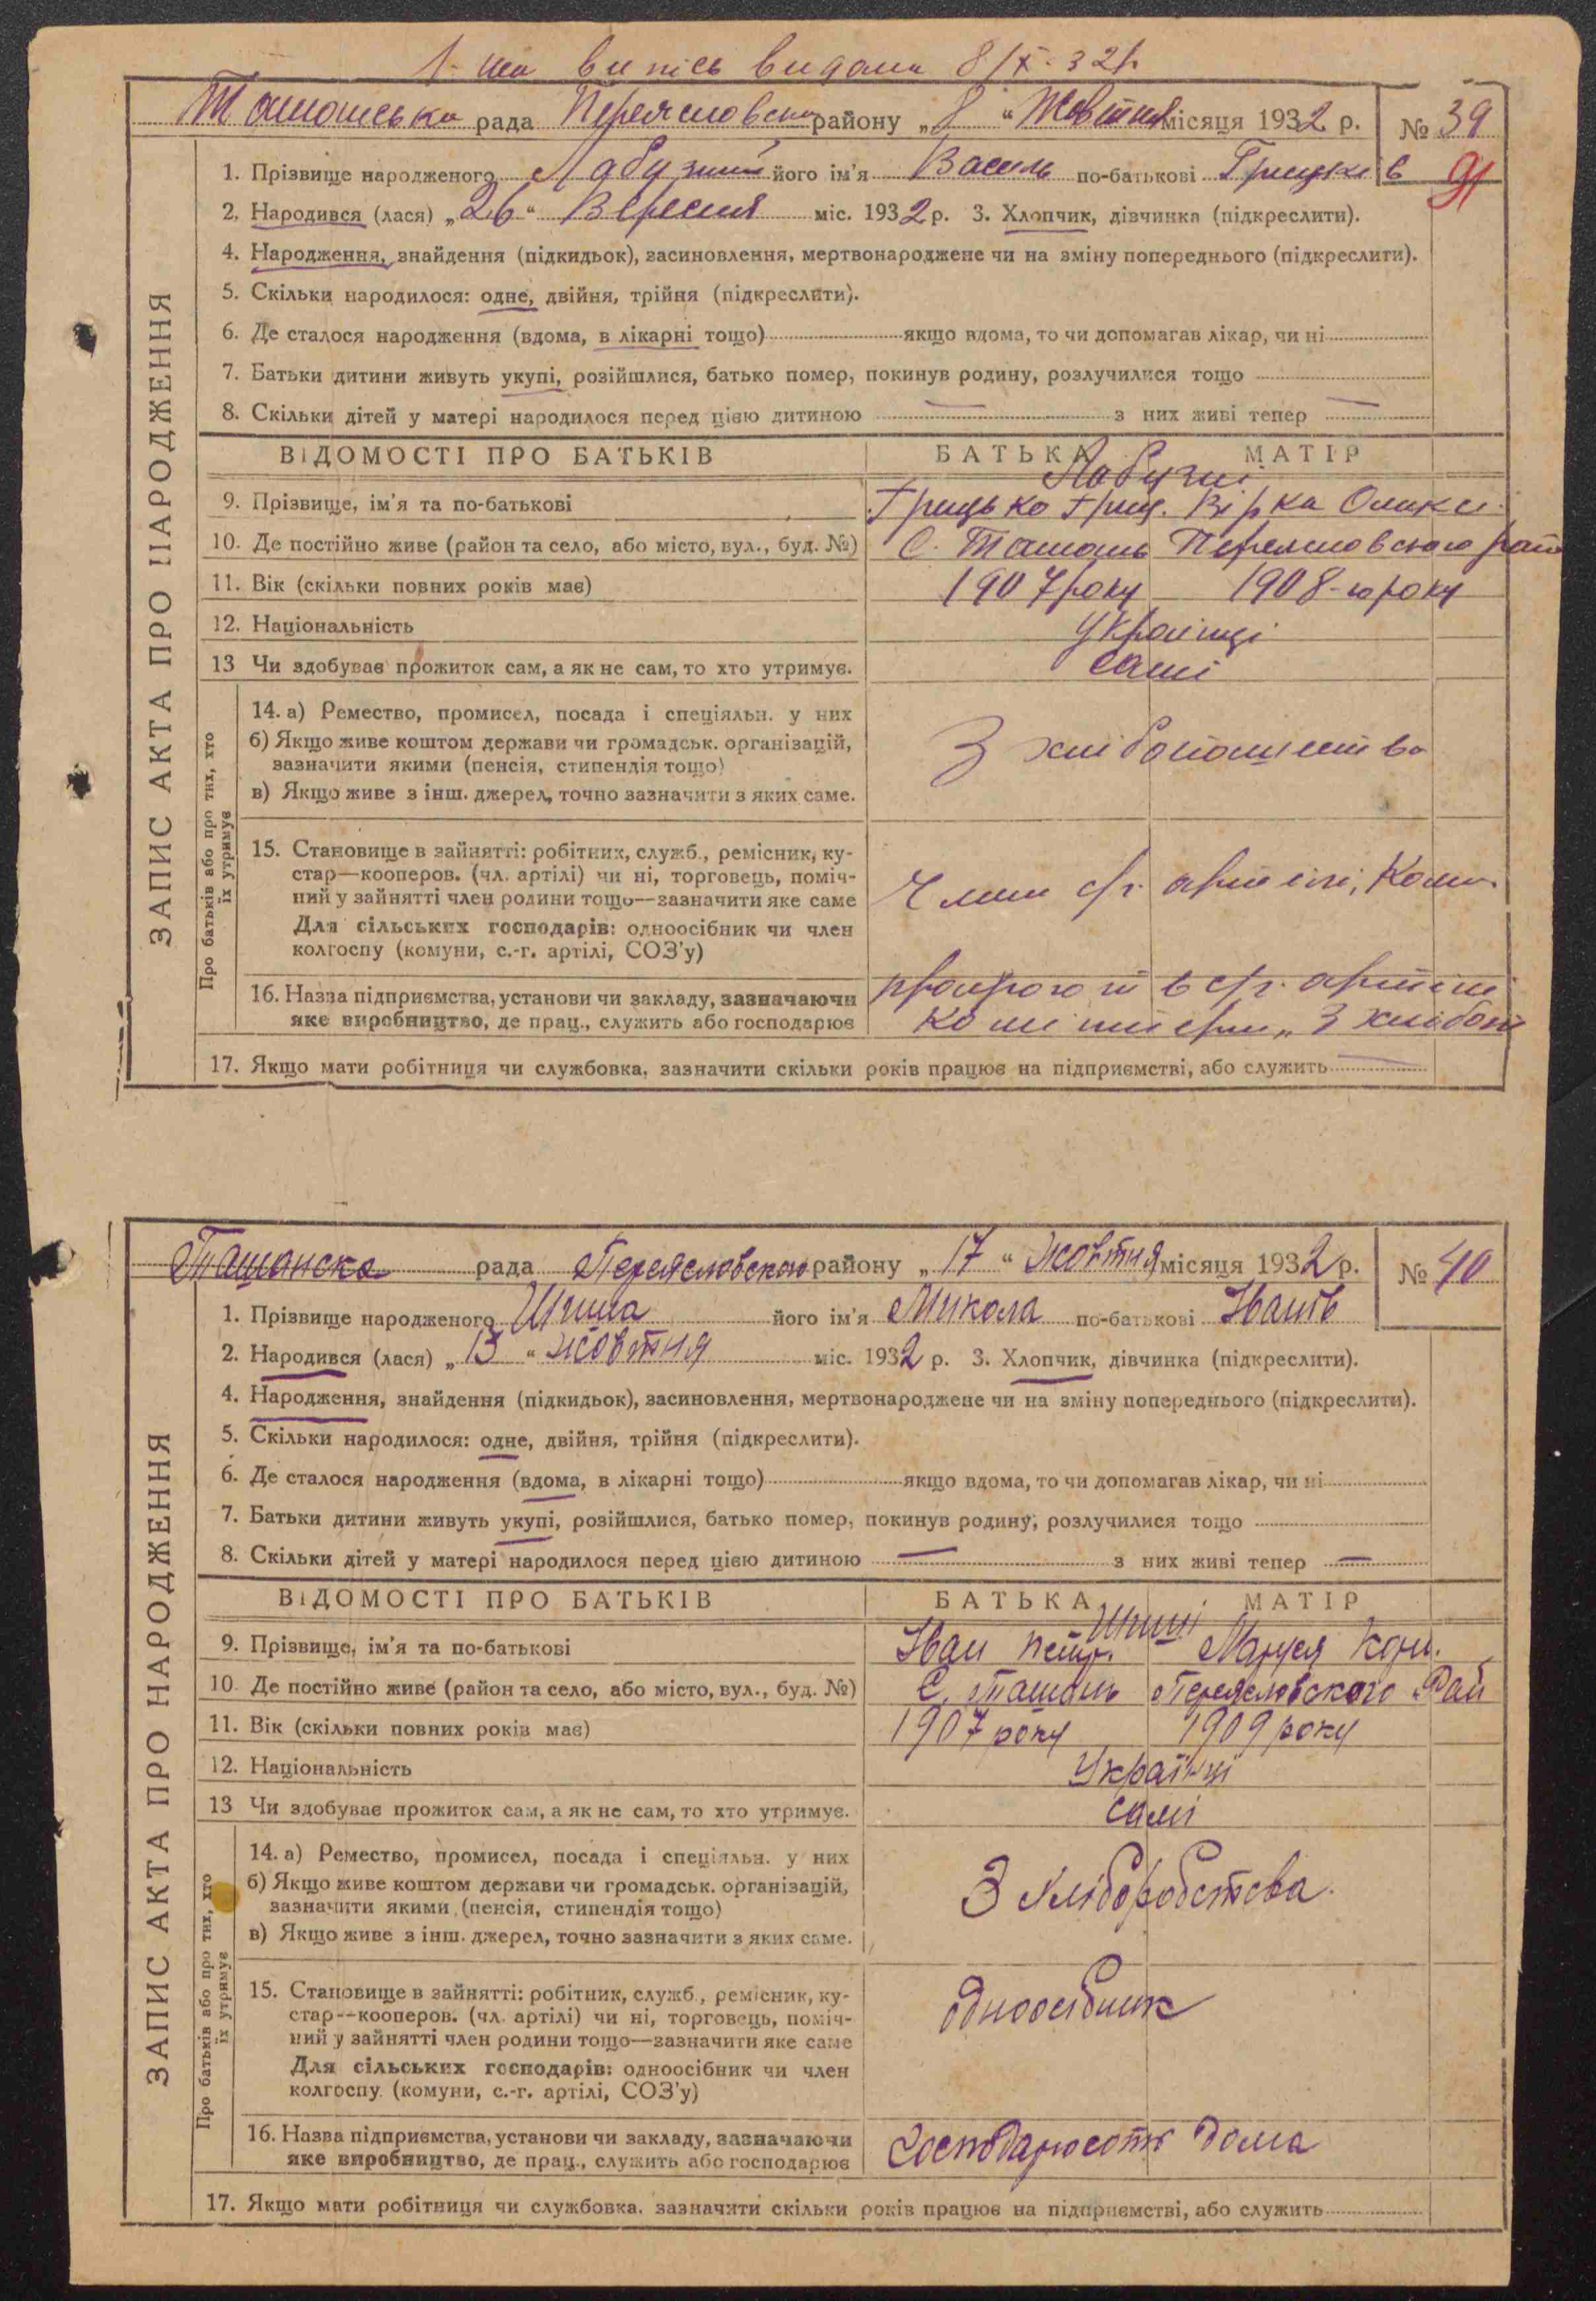 1-ша випісь видана 8/X-32р.
Ташанська рада Переяславськ району „8“ Жовтня місяця 1932 р. № 39
1. Прізвище народженого Лабузний його ім'я Василь по-батькові Грицьків 91
2. Народився (лася) „26“ Вересня міс. 1932 р. 3. Хлопчик, дівчинка (підкреслити).
4. Народження, знайдення (підкидьок), засиновлення, мертвонароджене чи на зміну попереднього (підкреслити).
5. Скільки народилося: одне, двійня, трійня (підкреслити).
6. Де сталося народження (вдома, в лікарні тощо) якщо вдома, то чи допомагав лікар, чи ні
7. Батьки дитини живуть укупі, розійшлися, батько помер, покинув родину, розлучилися тощо
8. Скільки дітей у матері народилося перед цією дитиною — з них живі тепер —
ВІДОМОСТІ ПРО БАТЬКІВ БАТЬКА МАТІР
Лабузні
9. Прізвище, ім'я та по-батькові Грицько Гриц. Вірка Олекс.
10. Де постійно живе (район та село, або місто, вул., буд. №) С. Ташань Переяславського рай
11. Вік (скільки повних років має) 1907 року 1908-го року
12. Національність Українці
13 Чи здобуває прожиток сам, а як не сам, то хто утримує. Самі
14. а) Ремество, промисел, посада і спеціяльн. у них
б) Якщо живе коштом держави чи громадськ. організацій,
зазначити якими (пенсія, стипендія тощо)
в) Якщо живе з інш. джерел, точно зазначити з яких саме.
З хлібопашества
15. Становище в зайнятті: робітник, служб., ремісник, ку-
стар—кооперов. (чл. артілі) чи ні, торговець, поміч-
ний у зайнятті член родини тощо—зазначити яке саме
Для сільських господарів: одноосібник чи член
колгоспу (комуни, с.-г. артілі, СОЗ'у)
Член с/г. артілі,
16. Назва підприємства, установи чи закладу, зазначаючи
яке виробництво, де прац., служить або господарює
в с/г. артілі
17. Якщо мати робітниця чи службовка, зазначити скільки років працює на підприємстві, або служить —
ЗАПИС АКТА ПРО НАРОДЖЕННЯ
Про батьків або про тих, хто
їх утримує
Ташанска рада Переясловского району „17“ жовтня місяця 1932 р. № 40
1. Прізвище народженого Шпила його ім'я Микола по-батькові Іванів
2. Народився (лася) „13“ жовтня міс. 1932 р. 3. Хлопчик, дівчинка (підкреслити).
4. Народження, знайдення (підкидьок), засиновлення, мертвонароджене чи на зміну попереднього (підкреслити).
5. Скільки народилося: одне, двійня, трійня (підкреслити).
6. Де сталося народження (вдома, в лікарні тощо) якщо вдома, то чи допомагав лікар, чи ні
7. Батьки дитини живуть укупі, розійшлися, батько помер, покинув родину, розлучилися тощо
8. Скільки дітей у матері народилося перед цією дитиною — з них живі тепер —
ВІДОМОСТІ ПРО БАТЬКІВ БАТЬКА МАТІР
9. Прізвище, ім'я та по-батькові Іван Петр. Маруся Корн.
10. Де постійно живе (район та село, або місто, вул., буд. №) С. Ташань Переясловского Рай
11. Вік (скільки повних років має) 1907 року 1909 року
12. Національність Українці
13 Чи здобуває прожиток сам, а як не сам, то хто утримує. Самі
14. а) Ремество, промисел, посада і спеціяльн. у них
б) Якщо живе коштом держави чи громадськ. організацій,
зазначити якими (пенсія, стипендія тощо)
в) Якщо живе з інш. джерел, точно зазначити з яких саме.
З хліборобства.
15. Становище в зайнятті: робітник, служб., ремісник, ку-
стар—кооперов. (чл. артілі) чи ні, торговець, поміч-
ний у зайнятті член родини тощо—зазначити яке саме
Для сільських господарів: одноосібник чи член
колгоспу (комуни, с.-г. артілі, СОЗ'у)
одноосібник
16. Назва підприємства, установи чи закладу, зазначаючи
яке виробництво, де прац., служить або господарює
дома
17. Якщо мати робітниця чи службовка. зазначити скільки років працює на підприємстві, або служить
ЗАПИС АКТА ПРО НАРОДЖЕННЯ
Про батьків або про тих, хто
їх утримує